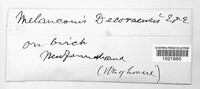 Melanconis Decoraensis E & E
on birch
Newfoundland
(Waghorne)
1021885